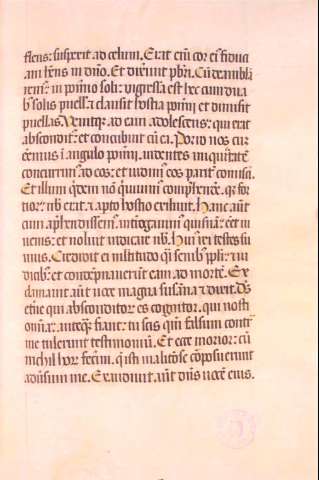 flens suspexit ad celum. Erat eni cor ei fiduci
am hens in dno. Et dixerunt pbri. Cu deambla
rem in pomio soli: ingressa est hec cum dua
b solis puellis: clausit hostia pomij et dimisit
puellas. Venitq ad eam adolescens: qui erat
abscondit et concubuit cu ea. Porro nos cum
essemus i angulo pomij. videntes iniquitate
concurrim ad eos: et vidim eos parit comisci.
Et illum qdem no quivim comphendere. qr for
tior nb erat. et apto hostio exilivit. Hanc aut
cum apphendissem interogavim quisna eet iu
venis: et noluit indicare nb. Huius rei testes su
mus. Credidit ei multitudo qi senib ppli et iu
dicib et condepnaverut eam ad morte. Ex
clamavit aut voce magna susana et dixit. Ds
eterne qui absconditor es cognitor. qui nosti
omia anteq fiant: tu scis qm falsum contra
me tulerunt testimoniu. Et ecce morior: cu
nichil hor fecim. q isti malitose composuerunt
adversum me. Exaudivit aut dns voce eius.